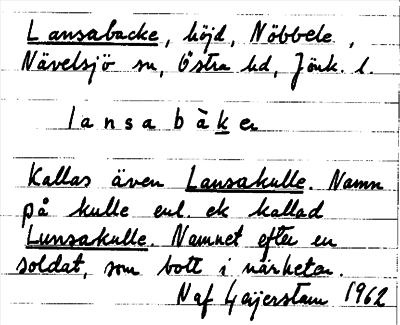 Lansabacke, höjd, Nöbbele,
Nävelsjö sn, Östra hd, Jönk. l.
lansabàker
Kallas även Lansakulle. Namn
på kulle enl. ek kallad
Lunsakulle. Namnet efter en
soldat, som bott i närheten.
Naf Geijerstam 1962